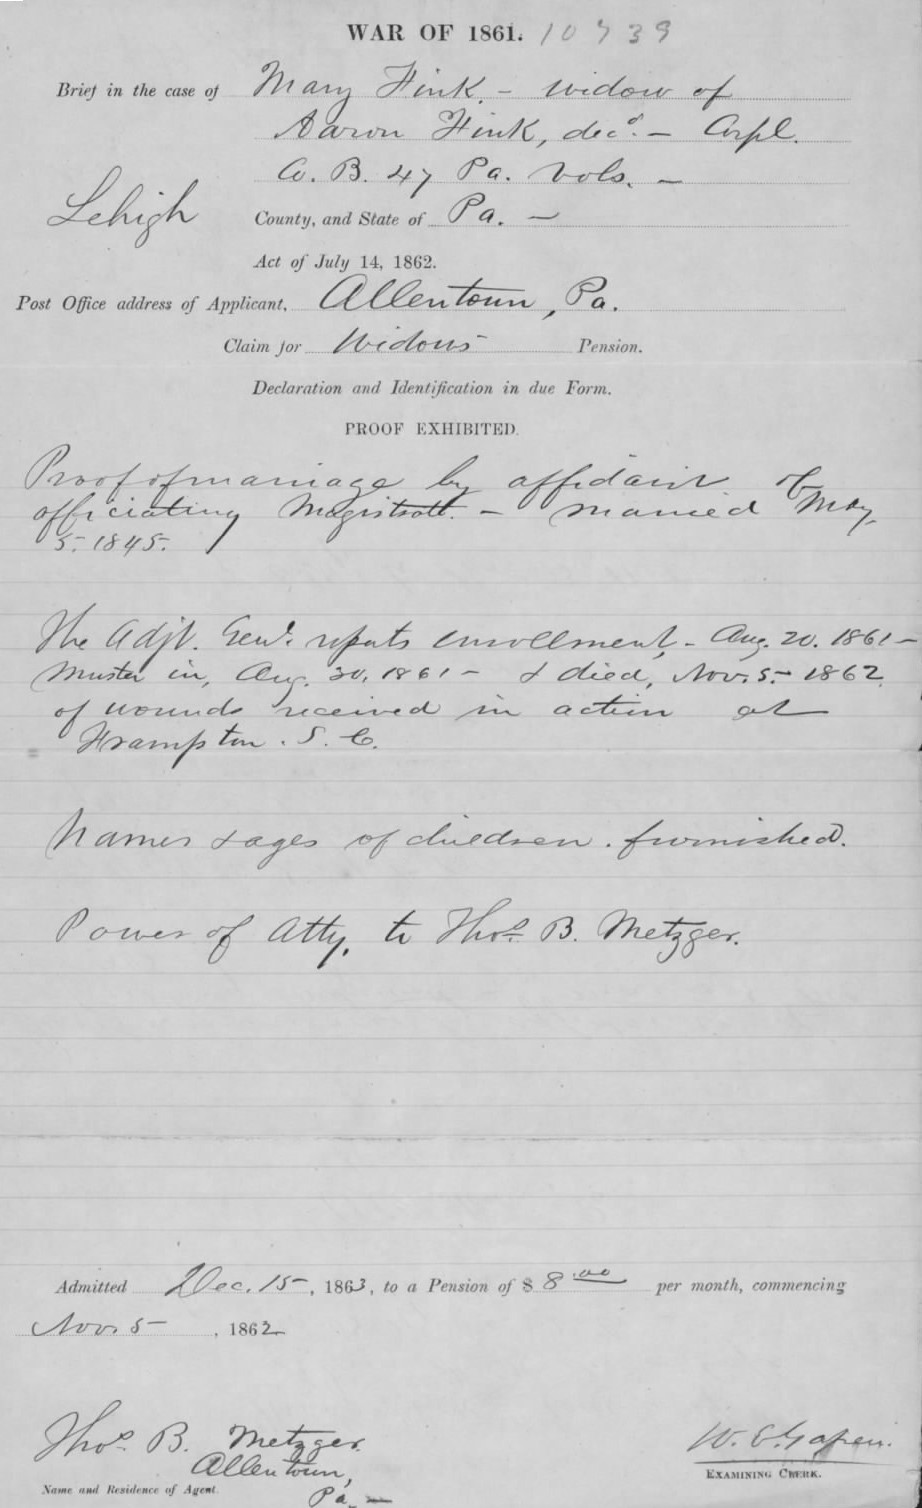 WAR OF 1861. 10739
Brief in the case of Mary Fink. - widow of
Aaron Fink, decd. - Corpl.
Co. B. 47 Pa. Vols. -
Lehigh County, and State of Pa. -
Act of July 14, 1862.
Post Office address of Applicant, Allentown, Pa.
Claim for Widows Pension.
Declaration and Identification in due Form.
PROOF EXHIBITED.
Proof of marriage by affidavit of
officiating Magistrate. - married May
5. 1845.
The Adjt. Genl. reports enrollment, - Aug. 20. 1861 -
Muster in, Aug. 30, 1861 - & died, Nov. 5. - 1862
of wounds received in action at
Frampton. S. C.
Names & ages of children. furnished.
Power of Atty, to Thos. B. Metzger.
Admitted Dec. 15, 1863, to a Pension of $8.00 per month, commencing
Nov. 5, 1862
Thos. B. Metzger.
Allentown,
Pa. -
Name and Residence of Agent.
W. E. Gapen.
EXAMINING CLERK.